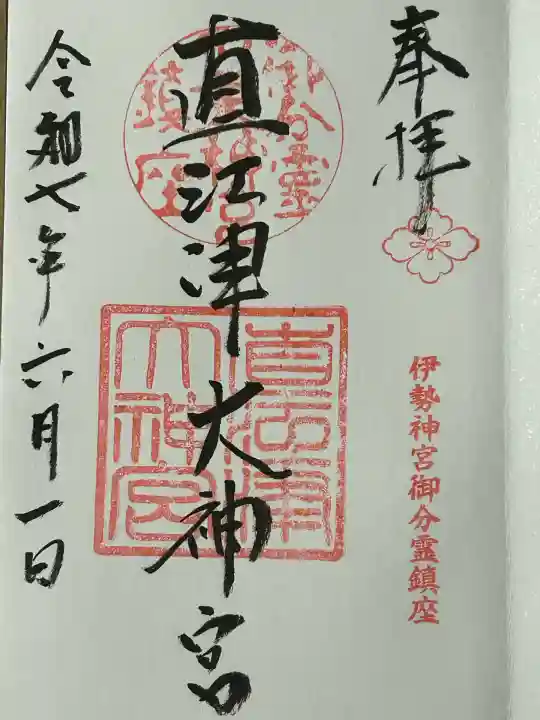 奉拝
伊勢神宮御分霊鎮座
直江津大神宮
直江津
大神宮
令和七年六月一日